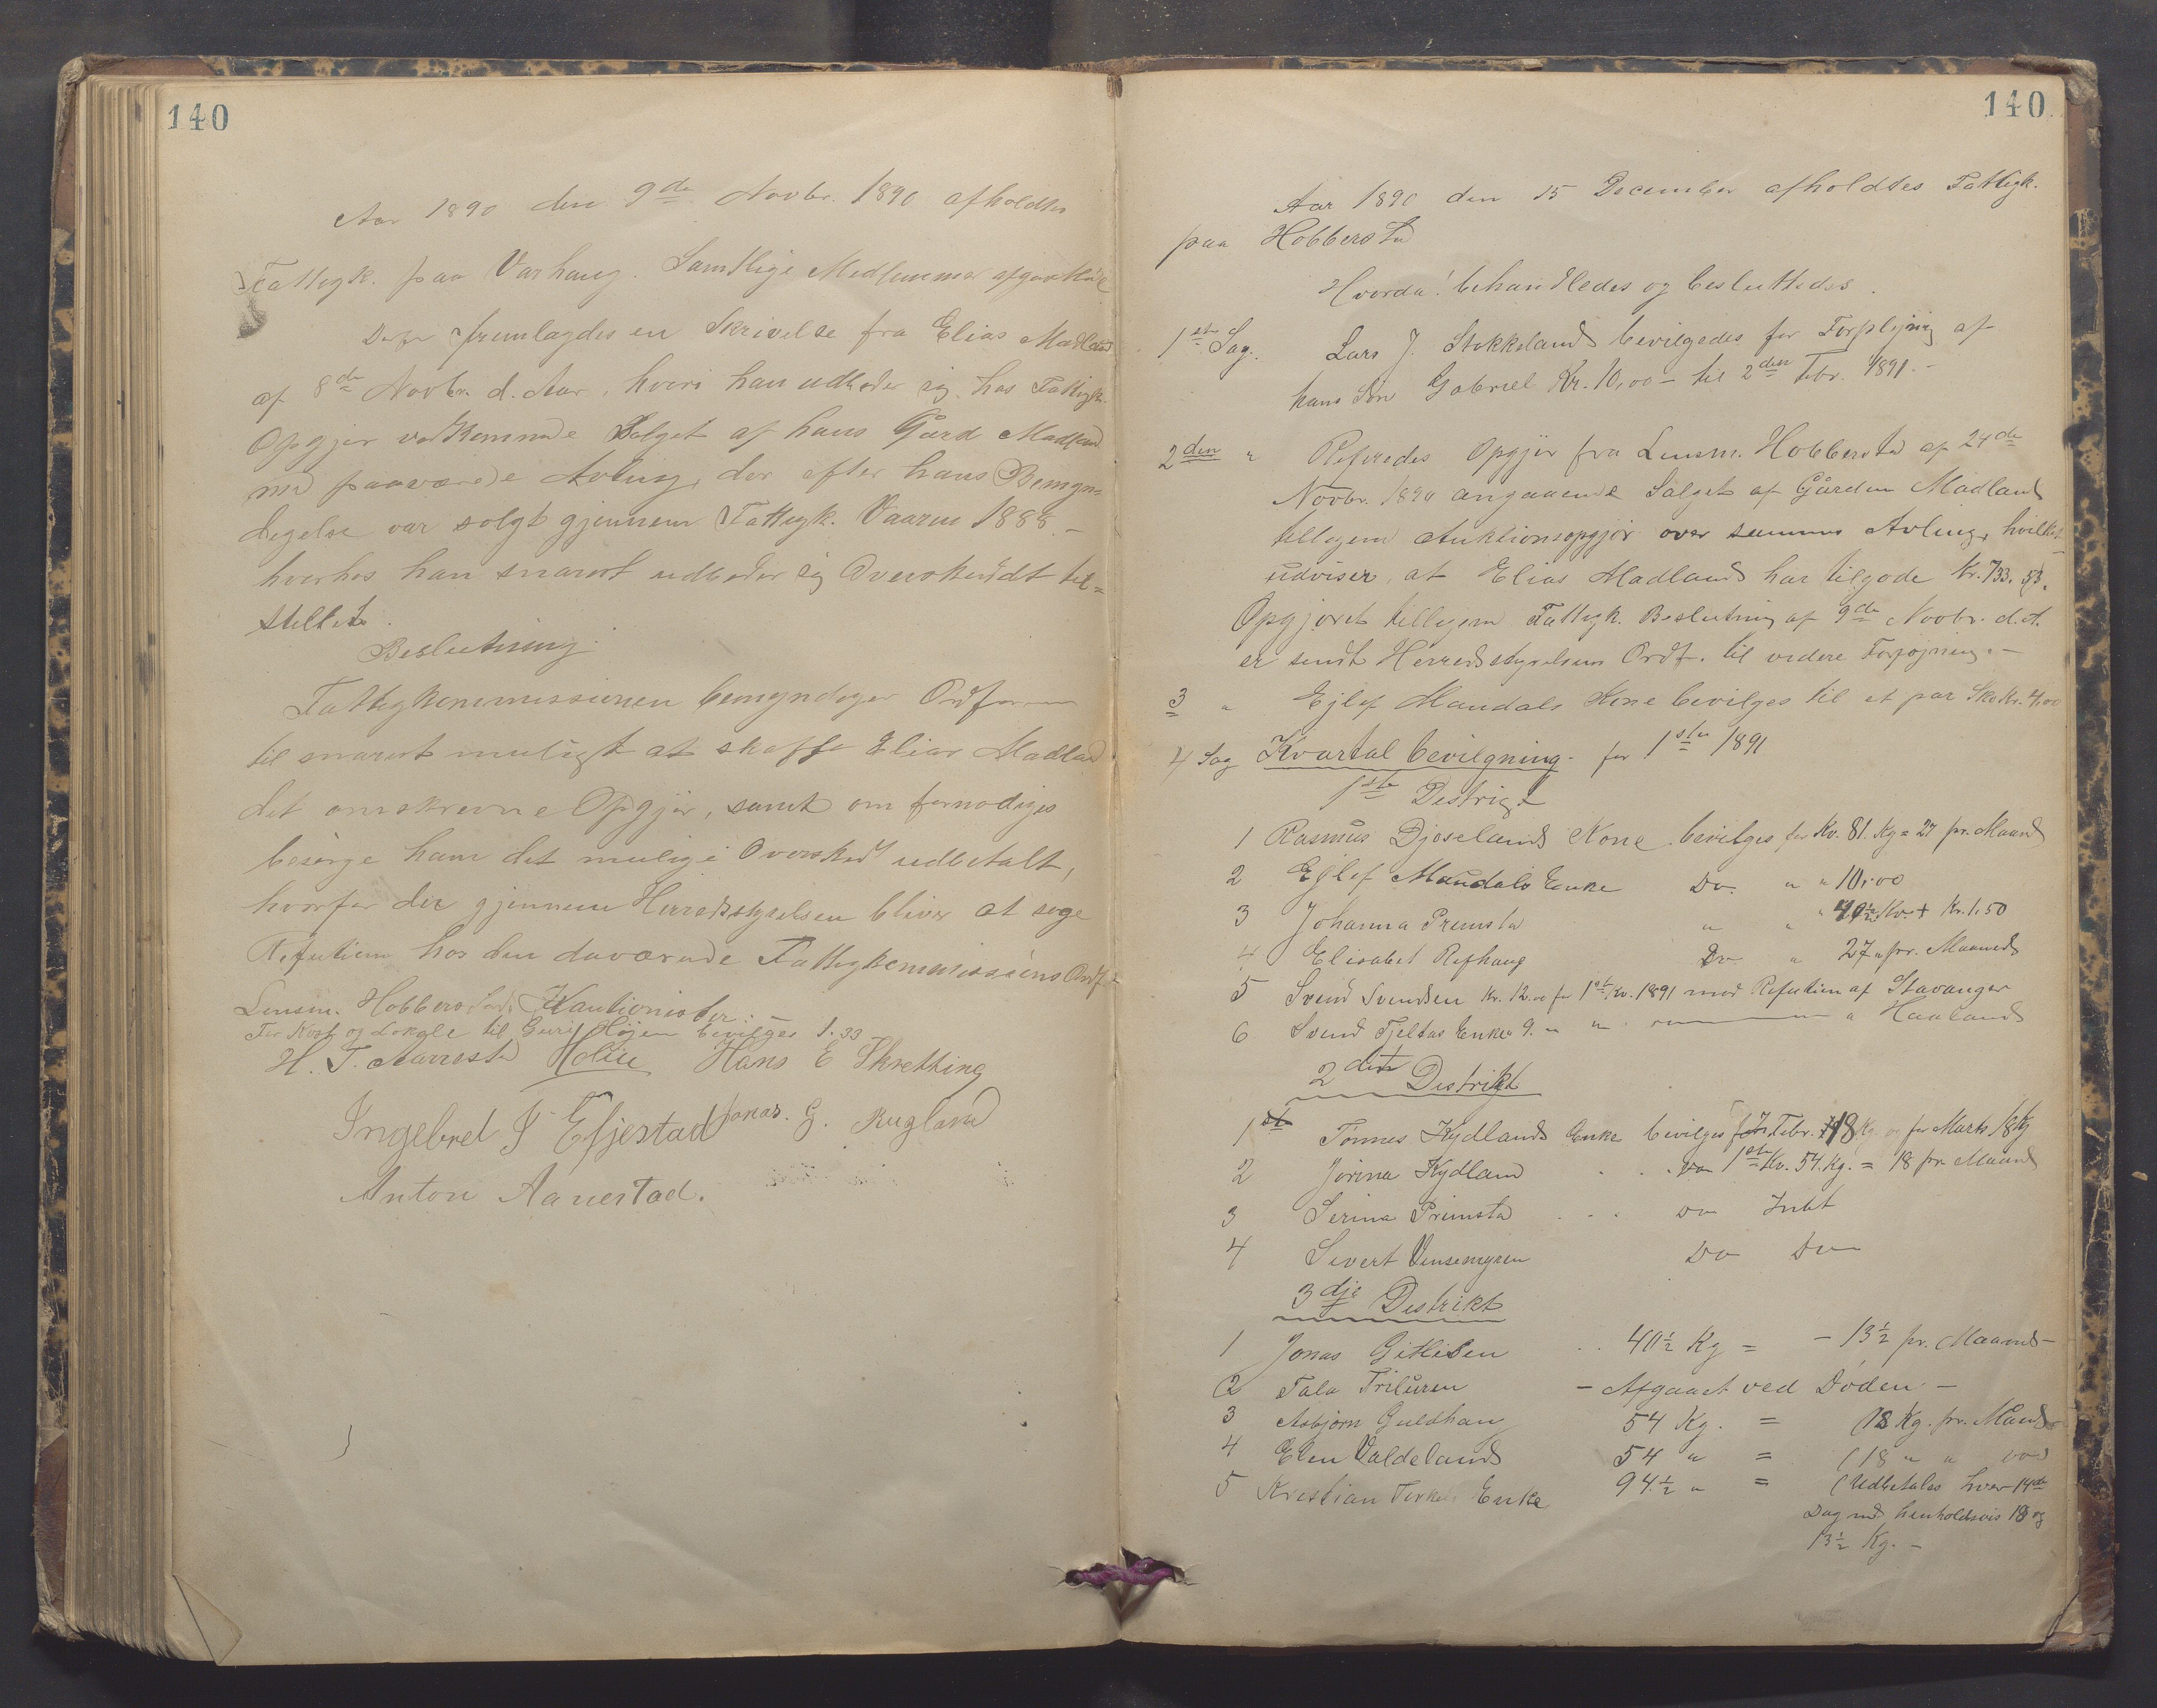 140
Aar 1890 den 9de Novbr. 1890 afholdtes
Fattigk. paa Varhaug. Samtlige Medlemmer
fremlagdes en Skrivelse fra Elias Madland
af 8de Novbr. d. Aar, hvori han udbeder sig hos Fattigk.
Opgjør vedkommende Salget af hans Gård Madland
med paaværende Avling, der efter hans Bemyn-
digelse var solgt gjennem Fattigk. Vaaren 1888. –
hvorhos han snarest udbeder sig Overskuddt til-
stillet.
Beslutning:
Fattigkommissionen bemyndiger Ordføreren
til snarest muligt at skaffe Elias Madland
det omskrevne Opgjør, samt om fornødiges
besørge ham det mulige Overskud udbetalt,
hvorfor der gjennem Herredsstyrelsen bliver at søge
Refution hos den daværende Fattigkommissions Ordf.
Lensm. Hobberstads Kautionister.
For Kost og Lokale til Guri Højen bevilges 1.33
H. T. Aarrestad Hans E Skretting
Ingebret T Efjestad Jonas. G. Rugland
Anton Aanestad.
140
Aar 1890 den 15 December afholdtes Fattigk.
paa Hobberstad
Hvorda! behandledes og besluttedes.
1ste Sag. Lars J. Stokkeland bevilgedes for Forplejning af
hans Søn Gabriel Kr. 10,00 – til 2den Febr. 1891. –
2den " Refiredes Opgjør fra Lensm. Hobberstad af 24de
Novbr. 1890 angaaende Salget af Gården Madland
tilligem Auktionsopgjør over samme Avling, hvilket
udviser, at Elias Madland har tilgode Kr. 733.53.
Opgjøret tilligem Fattigk. Beslutning af 9de Novbr. d.A.
er sendt Herredsstyrelsens Ordf. til videre Forføjning. –
3 " Ejlef Maudals Kone bevilges til et par Sko Kr. 4,00
4 Sag Kvartal bevilgning for 1ste 1891
1ste Distrigt
1 Rasmus Djøselands Kone bevilges for Kv. 81. Kg = 27 pr. Maaned
2 Ejlef Maudals Enke Do. " " 10,00
3 Johanna Premsta " " " 40½ Kv. + Kr. 1,50
4 Elisabet Refhaug Do " 27 " pr. Maaned
5 Svend Svendsen Kr. 12.00 for 1ste Kv. 1891 mod Refution af Stavanger
6 Svend Tjeltas Enke " 9. " " " Haaland
2det Distrikt
1st Tønnes Kydlands Enke bevilges for Febr. 18 Kg og for Marts 18 Kg
2 Jorina Kydland Do 1ste Kv. 54. Kg. = 18 pr Maaned
3 Serina Primsta Do Intet
4 Sivert Vensemyren Do Do
3dje Distrikt
1 Jonas Gitlesen 40½ Kg = – 13½ pr. Maaned –
2 Tala – Afgaaet ved Døden –
3 Asbjørn Guldhau 54 Kg. = (18 Kg. pr. Maaned
4 Elen Valdeland 54 " = (18 " "
5 Kristian Enke 94½ " = (Udbetales hver 14de
Dag med henholdsvis 18 og
13½ Kg. –